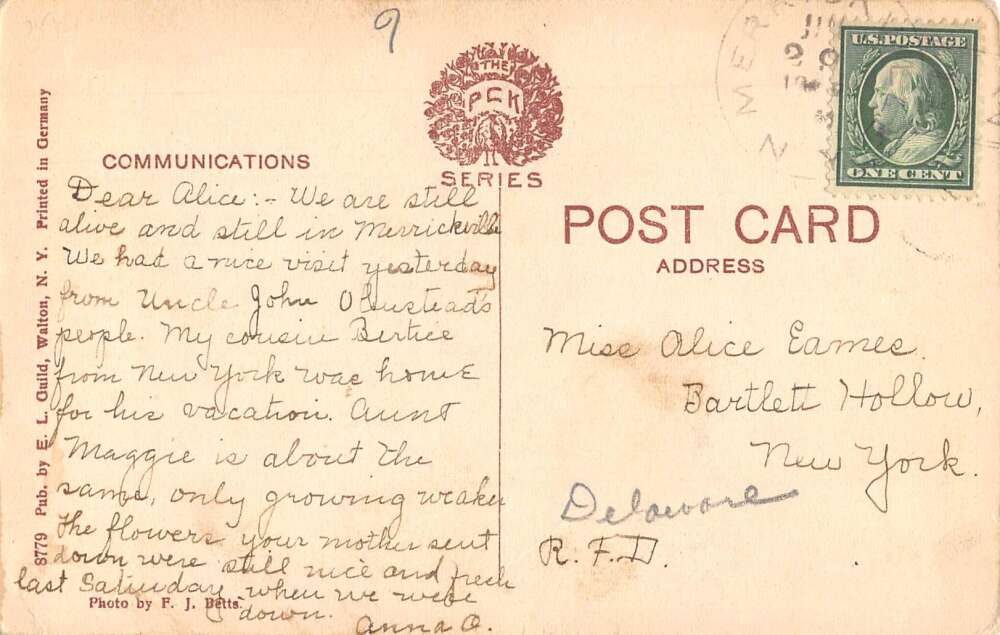 9
THE
PCK
SERIES
U.S. POSTAGE
ONE CENT
COMMUNICATIONS
POST CARD
ADDRESS
8779 Pub. by E. L. Guild, Walton, N. Y. Printed in Germany
Dear Alice:- We are still
alive and still in Merrickville
We had a nice visit yesterday
from Uncle John Olmstead's
people. My cousin Bertice
from New York was home
for his vacation. Aunt
Maggie is about the
same, only growing weaker
The flowers your mother sent
down were still nice and fresh
last Saturday when we were
down.
Anna O.
Photo by F. J. Betts
Miss Alice Eames.
Bartlett Hollow,
New York.
Delaware
R. F. D.